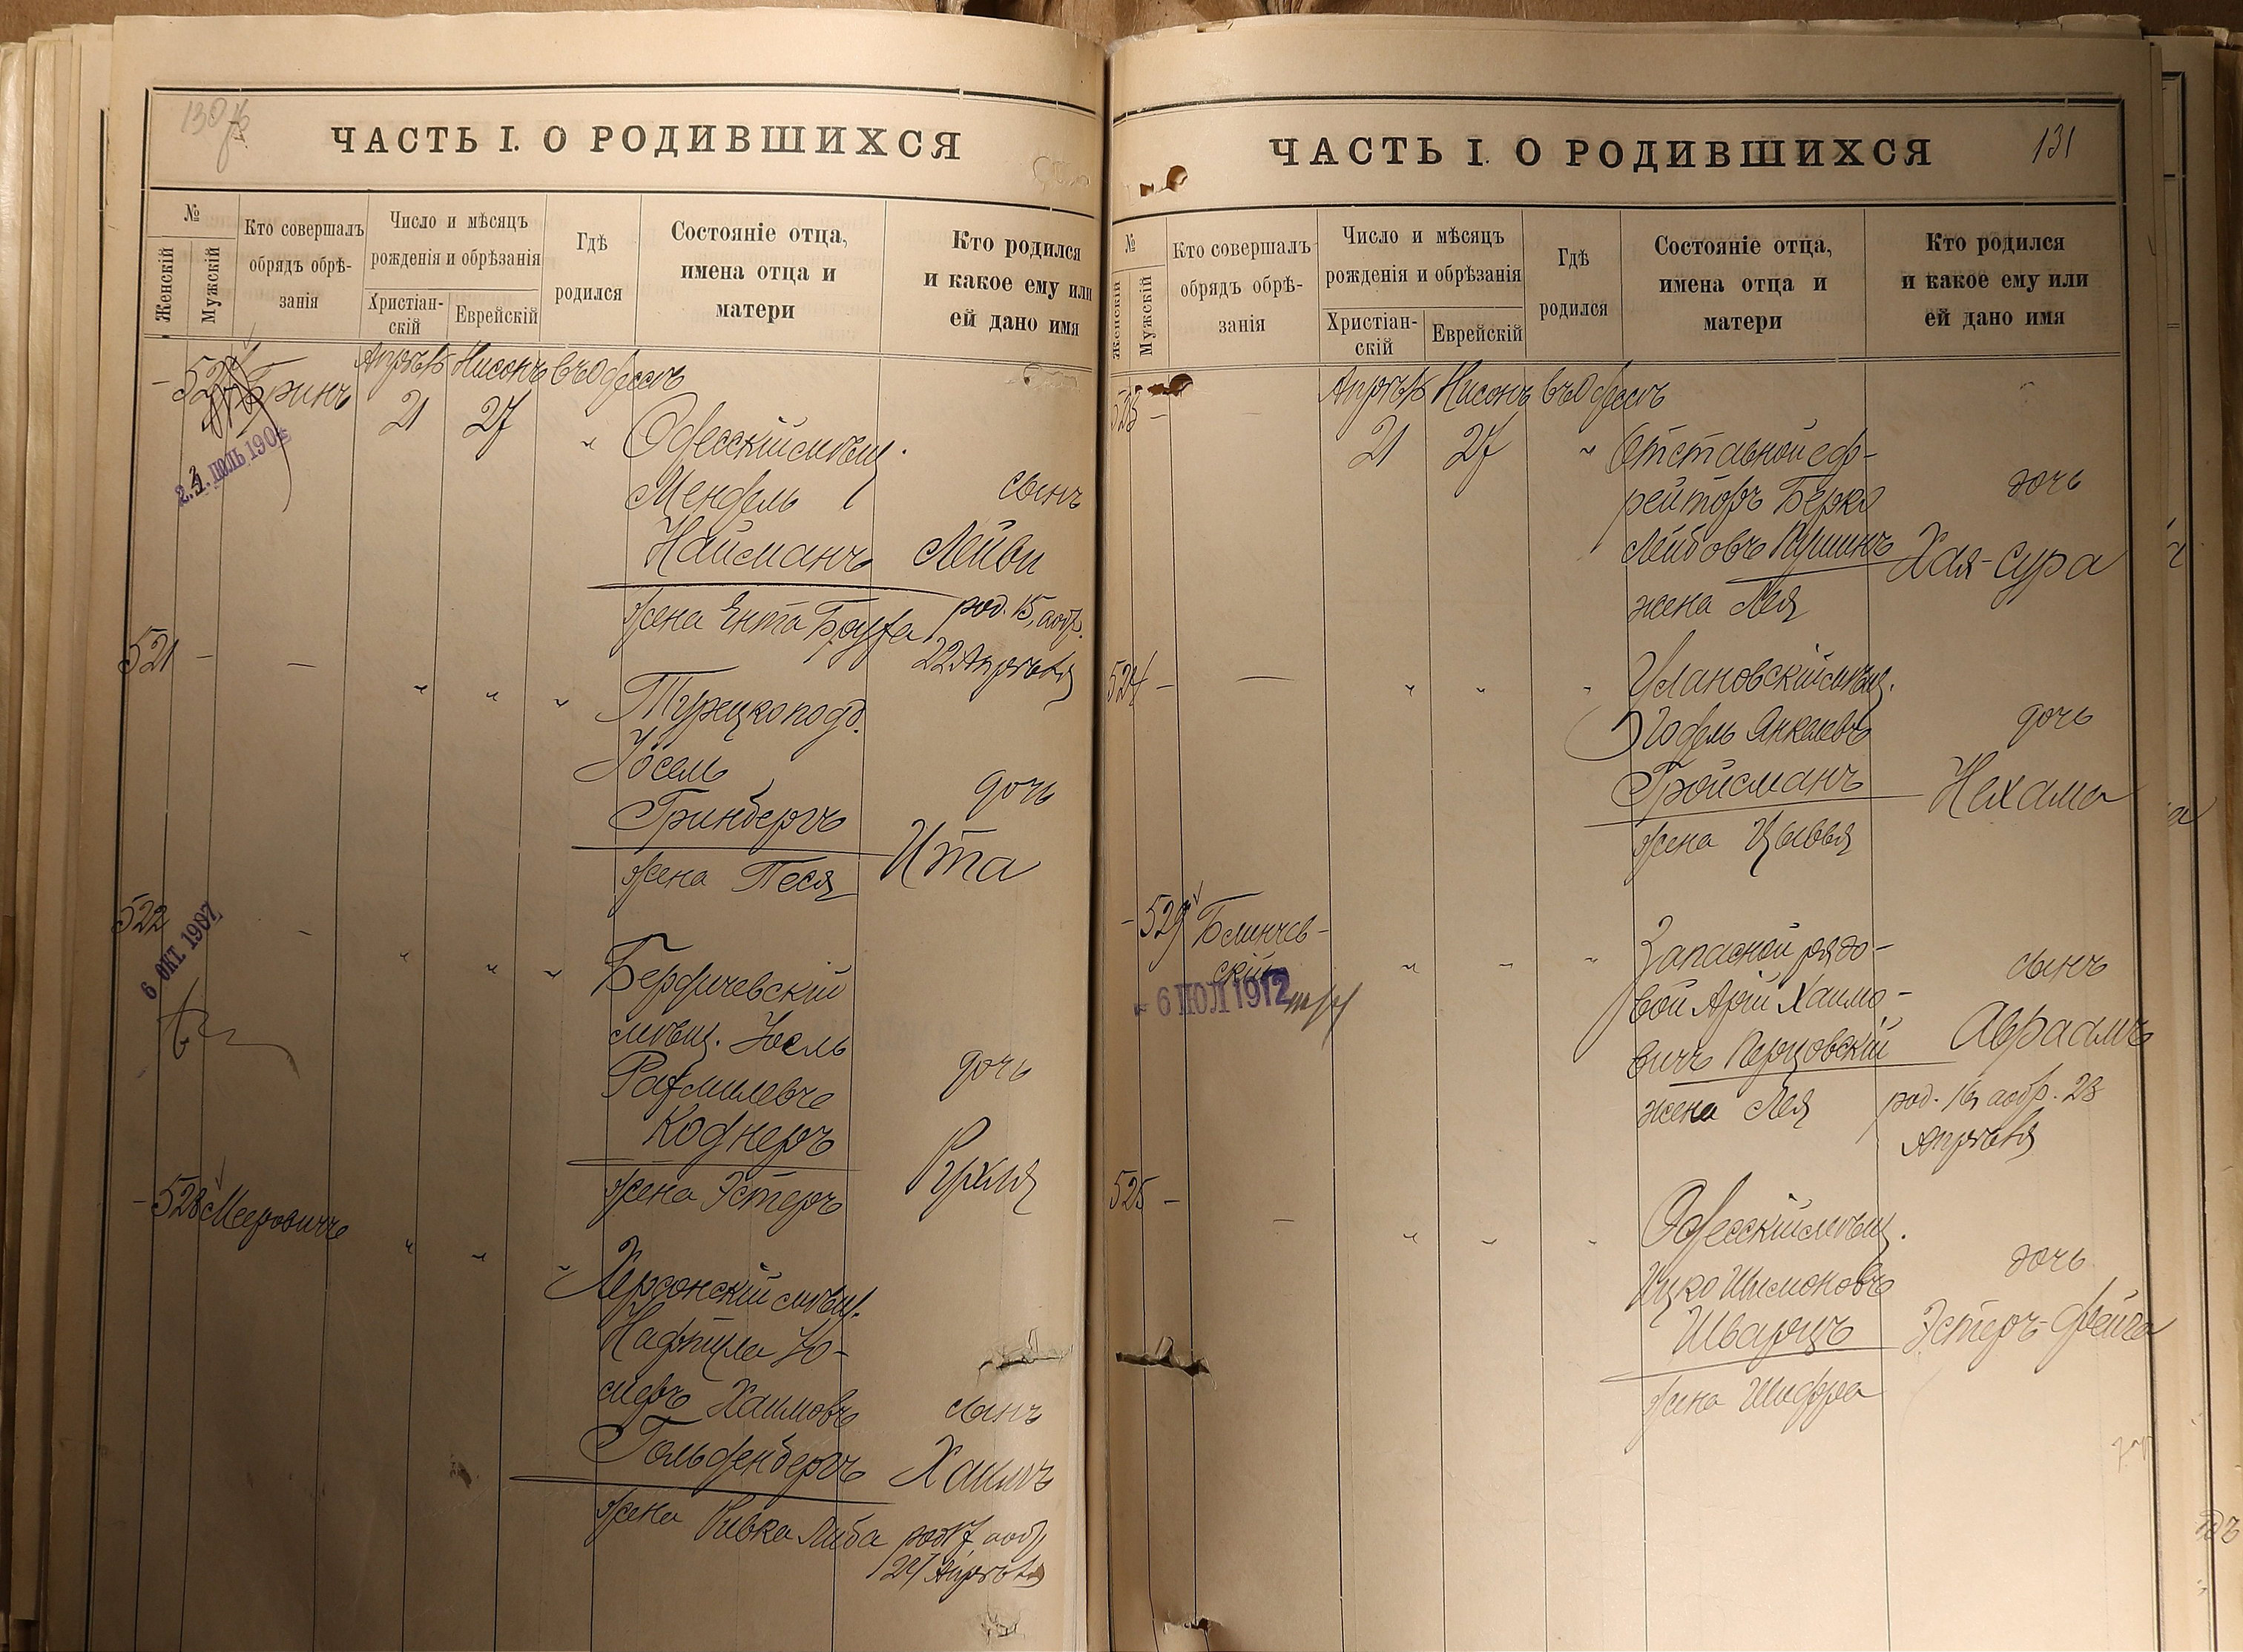 130 об
ЧАСТЬ I. О РОДИВШИХСЯ
№
Женскій
Мужскій
Кто совершалъ
обрядъ обрѣ-
занія
Число и мѣсяцъ
рожденія и обрѣзанія
Христіан-
скій
Еврейскій
Гдѣ
родился
Состояніе отца,
имена отца и
матери
Кто родился
и какое ему или
ей дано имя
Гринъ
Апрѣль Нисонъ въ Одессѣ
21 27 "
Одесскій мѣщ.
Мендель
Найсманъ
жена Ента Бруха
сынъ
Лейви
род. 15, а обр.
22 Апрѣля
2. ІЮЛЬ 190
521 - - " " "
Турецкопод.
Іосель
Гринбергъ
жена Песя
дочь
Ита
522 - " " "
6 ОКТ. 1907
Бердичевскій
мѣщ. Іосль
Коднеръ
жена Эстеръ
дочь
Рухля
- 528 Мееровичъ " " "
Херсонскій мѣщ.
Нафтула Іо-
Хаимовъ
Гольденбергъ
жена Ривка Либа
сынъ
Хаимъ
род. 17, а обр.
24 Апрѣля
ЧАСТЬ I. О РОДИВШИХСЯ
131
№
Женскій
Мужскій
Кто совершалъ
обрядъ обрѣ-
занія
Число и мѣсяцъ
рожденія и обрѣзанія
Христіан-
скій
Еврейскій
Гдѣ
родился
Состояніе отца,
имена отца и
матери
Кто родился
и какое ему или
ей дано имя
523 - -
Апрѣль Нисонъ въ Одессѣ
21 27 "
Отставной еф-
рейторъ Берко
Лейбовъ
жена Лея
дочь
Хая-Сура
524 - - " " "
Улановскій мѣщ.
Юдель Янкелевъ
Гройсманъ
жена Цывья
дочь
Нехама
- 529 Блинчев-
скій " - "
- 6 ІЮЛ 1912
Запасной рядо-
вой Арій Хаимо-
вичъ Перцовскій
жена Лея
сынъ
Авраамъ
род. 16, а обр. 23
Апрѣля
525 - - " " "
Одесскій мѣщ.
Ицко Шимоновъ
Шварцъ
жена Шифра
дочь
Эстеръ-Фейга